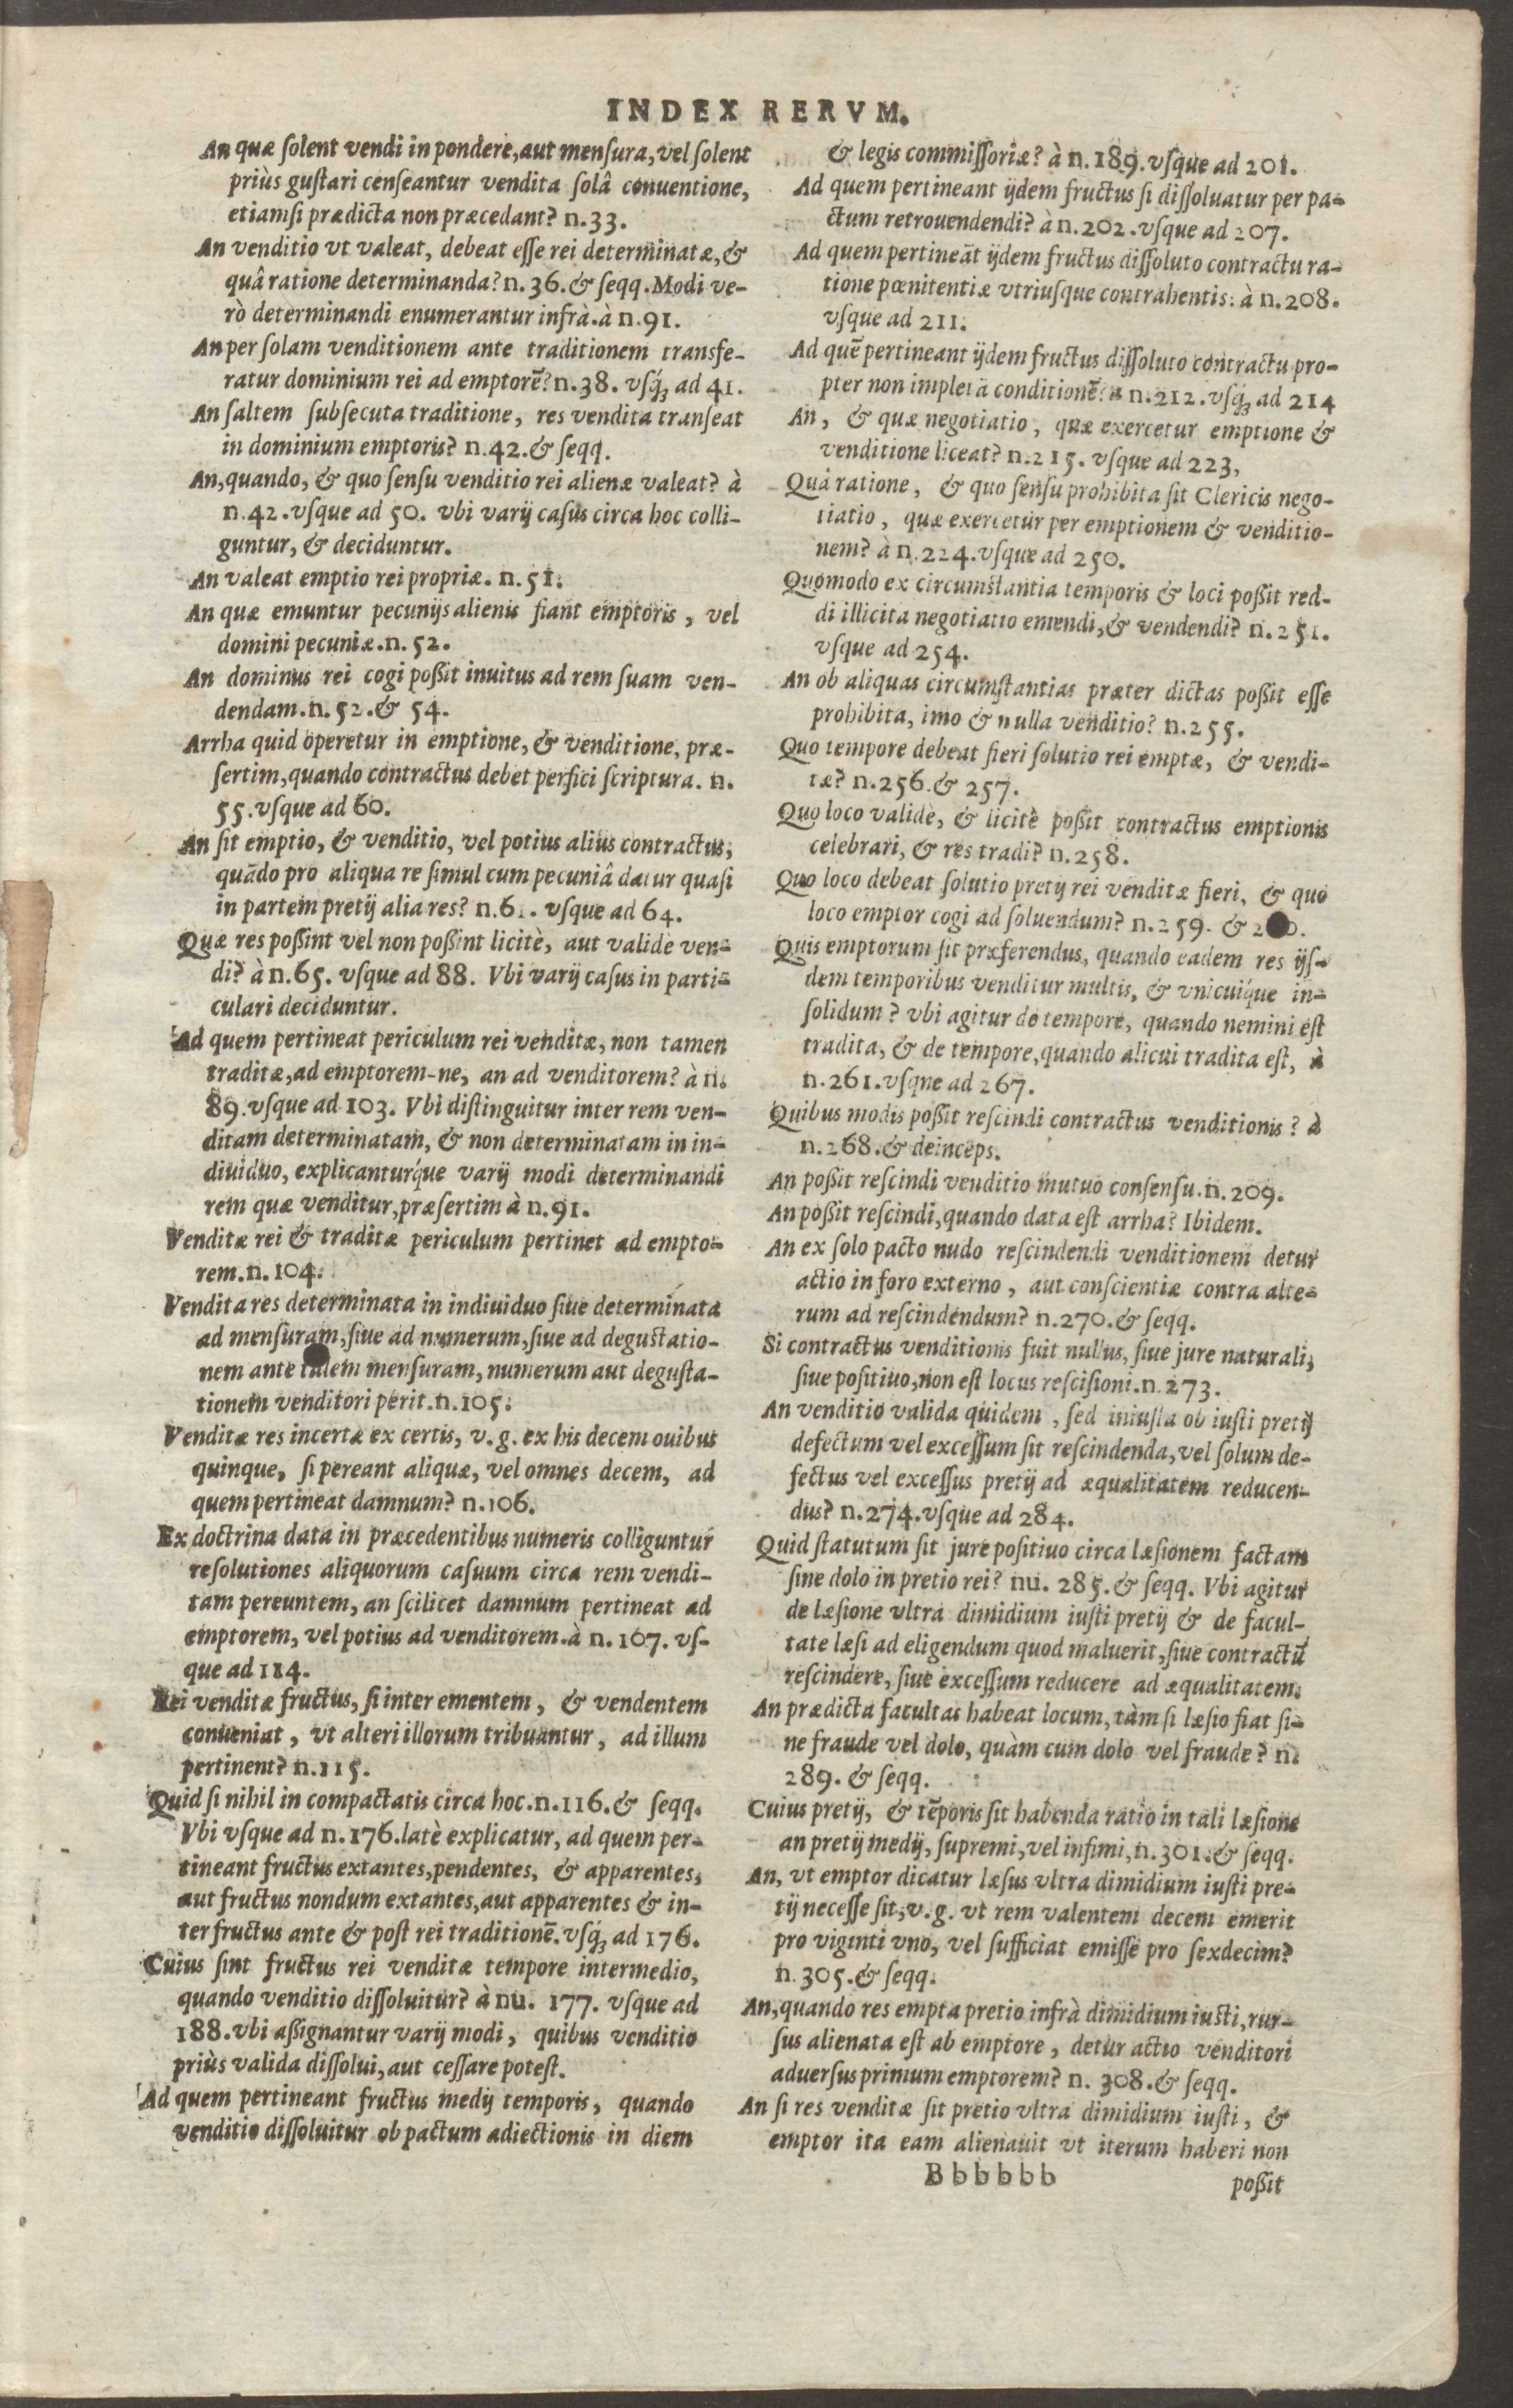 INDEX RERVM.
An quæ ſolent vendi in pondere, aut menſura, vel ſolent
priùs guſtari cenſeantur vendita ſolâ conuentione,
etiamſi prædicta non præcedant? n.33.
An venditio vt valeat, debeat eſſe rei determinatæ, &
quâ ratione determinanda? n. 36. & ſeqq. Modi ve-
rò determinandi enumerantur infrà. à n.91.
An per ſolam venditionem ante traditionem transfe-
ratur dominium rei ad emptorẽ? n.38. vſq́ꝫ ad 41.
An ſaltem ſubſecuta traditione, res vendita tranſeat
in dominium emptoris? n.42. & ſeqq.
An, quando, & quo ſenſu venditio rei alienæ valeat? à
n.42. vſque ad 50. vbi varij caſus circa hoc colli-
guntur, & deciduntur.
An valeat emptio rei propriæ. n.51.
An quæ emuntur pecunijs alienis fiant emptoris, vel
domini pecuniæ. n. 52.
An dominus rei cogi poßit inuitus ad rem ſuam ven-
dendam. n. 52. & 54.
Arrha quid operetur in emptione, & venditione, præ-
ſertim, quando contractus debet perfici ſcriptura. n.
55. vſque ad 60.
An ſit emptio, & venditio, vel potius alius contractus,
quãdo pro aliqua re ſimul cum pecuniâ datur quaſi
in partem pretij alia res? n.61. vſque ad 64.
Quæ res poſſint vel non poßint licitè, aut validè ven-
di? à n.65. vſque ad 88. Vbi varij caſus in parti-
culari deciduntur.
Ad quem pertineat periculum rei venditæ, non tamen
traditæ, ad emptorem-ne, an ad venditorem? à n.
89. vſque ad 103. Vbi diſtinguitur inter rem ven-
ditam determinatam, & non determinatam in in-
diuiduo, explicanturq́ue varij modi determinandi
rem quæ venditur, præſertim à n.91.
Venditæ rei & traditæ periculum pertinet ad empto-
rem. n. 104.
Vendita res determinata in indiuiduo ſiue determinata
ad menſuram, ſiue ad numerum, ſiue ad deguſtatio-
nem ante talem menſuram, numerum aut deguſta-
tionem venditori perit. n.105.
Venditæ res incertæ ex certis, v.g. ex his decem ouibus
quinque, ſi pereant aliquæ, vel omnes decem, ad
quem pertineat damnum? n.106.
Ex doctrina data in præcedentibus numeris colliguntur
reſolutiones aliquorum caſuum circa rem vendi-
tam pereuntem, an ſcilicet damnum pertineat ad
emptorem, vel potius ad venditorem. à n. 107. vſ-
que ad 114.
Rei venditæ fructus, ſi inter ementem, & vendentem
conueniat, vt alteri illorum tribuantur, ad illum
pertinent? n.115.
Quid ſi nihil in compactatis circa hoc. n.116. & ſeqq.
Vbi vſque ad n.176. latè explicatur, ad quem per-
tineant fructus extantes, pendentes, & apparentes,
aut fructus nondum extantes, aut apparentes & in-
ter fructus ante & poſt rei traditionẽ. vſq́ꝫ ad 176.
Cuius ſint fructus rei venditæ tempore intermedio,
quando venditio diſſoluitur? à nu. 177. vſque ad
188. vbi aßignantur varij modi, quibus venditio
priùs valida diſſolui, aut ceſſare poteſt.
Ad quem pertineant fructus medij temporis, quando
venditio diſſoluitur ob pactum adiectionis in diem
& legis commiſſoriæ? à n. 189. vſque ad 201.
Ad quem pertineant ijdem fructus ſi diſſoluatur per pa-
ctum retrouendendi? à n.202. vſque ad 207.
Ad quem pertineãt ijdem fructus diſſoluto contractu ra-
tione pœnitentiæ vtriuſque contrahentis: à n.208.
vſque ad 211.
Ad quẽ pertineant ijdem fructus diſſoluto contractu pro-
pter non impletã conditionẽ? à n.212. vſq́ꝫ ad 214
An, & quæ negotiatio, quæ exercetur emptione &
venditione liceat? n.215. vſque ad 223,
Quâ ratione, & quo ſenſu prohibita ſit Clericis nego-
tiatio, quæ exercetur per emptionem & venditio-
nem? à n.224. vſque ad 250.
Quomodo ex circumſtantia temporis & loci poßit red-
di illicita negotiatio emendi, & vendendi? n.251.
vſque ad 254.
An ob aliquas circumſtantias præter dictas poßit eſſe
prohibita, imo & nulla venditio? n.255.
Quo tempore debeat fieri ſolutio rei emptæ, & vendi-
tæ? n.256. & 257.
Quo loco validè, & licitè poßit contractus emptionis
celebrari, & res tradi? n.258.
Quo loco debeat ſolutio pretij rei venditæ fieri, & quo
loco emptor cogi ad ſoluendum? n.259. &
Quis emptorum ſit præferendus, quando eadem res ijſ-
dem temporibus venditur multis, & vnicuiq́ue in-
ſolidum? vbi agitur de tempore, quando nemini eſt
tradita, & de tempore, quando alicui tradita eſt, à
n.261. vſqne ad 267.
Quibus modis poßit reſcindi contractus venditionis? à
n.268. & deinceps.
An poßit reſcindi venditio mutuo conſenſu. n. 209.
An poßit reſcindi, quando data eſt arrha? Ibidem.
An ex ſolo pacto nudo reſcindendi venditionem detur
actio in foro externo, aut conſcientiæ contra alte-
rum ad reſcindendum? n.270. & ſeqq.
Si contractus venditionis fuit nullus, ſiue jure naturali,
ſiue poſitiuo, non eſt locus reſciſioni. n.273.
An venditio valida quidem, ſed iniuſta ob iuſti pretij
defectum vel exceſſum ſit reſcindenda, vel ſolum de-
fectus vel exceſſus pretij ad æqualitatem reducen-
dus? n.274. vſque ad 284.
Quid ſtatutum ſit jure poſitiuo circa læſionem factam
ſine dolo in pretio rei? nu. 285. & ſeqq. Vbi agitur
de læſione vltra dimidium iuſti pretij & de facul-
tate læſi ad eligendum quod maluerit, ſiue contractũ
reſcindere, ſiue exceſſum reducere ad æqualitatem.
An prædicta facultas habeat locum, tàm ſi læſio fiat ſi-
ne fraude vel dolo, quàm cum dolo vel fraude? n.
289. & ſeqq.
Cuius pretij, & tẽporis ſit habenda ratio in tali læſione
an pretij medij, ſupremi, vel infimi, n.301. & ſeqq.
An, vt emptor dicatur læſus vltra dimidium iuſti pre-
tij neceſſe ſit, v.g. vt rem valentem decem emerit
pro viginti vno, vel ſufficiat emiſſe pro ſexdecim?
n.305. & ſeqq.
An, quando res empta pretio infrà dimidium iuſti, rur-
ſus alienata eſt ab emptore, detur actio venditori
aduerſus primum emptorem? n. 308. & ſeqq.
An ſi res venditæ ſit pretio vltra dimidium iuſti, &
emptor ita eam alienauit vt iterum haberi non
Bbbbbb
poßit